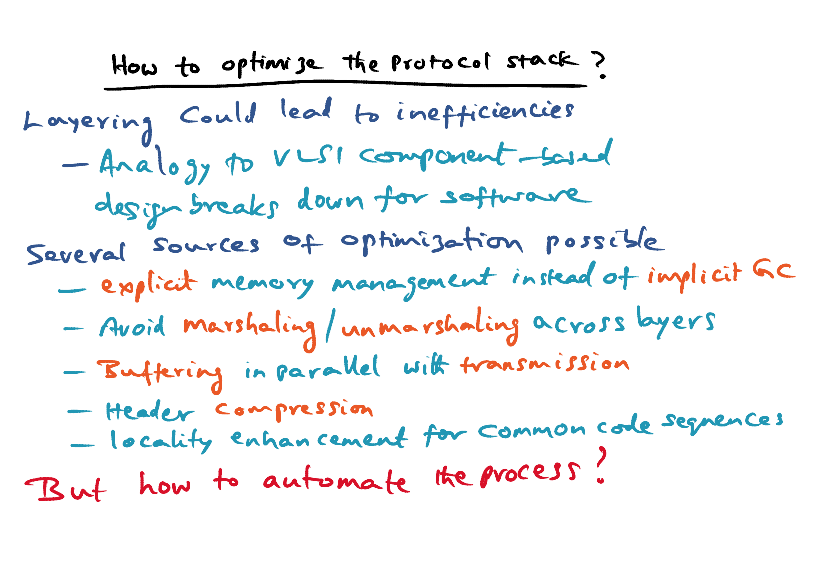 How to optimize the protocol stack?
Layering could lead to inefficiencies
- Analogy to VLSI component-based
design breaks down for software
Several sources of optimization possible
- explicit memory management instead of implicit GC
- Avoid marshaling/unmarshaling across layers
- Buffering in parallel with transmission
- Header compression
- locality enhancement for common code sequences
But how to automate the process?